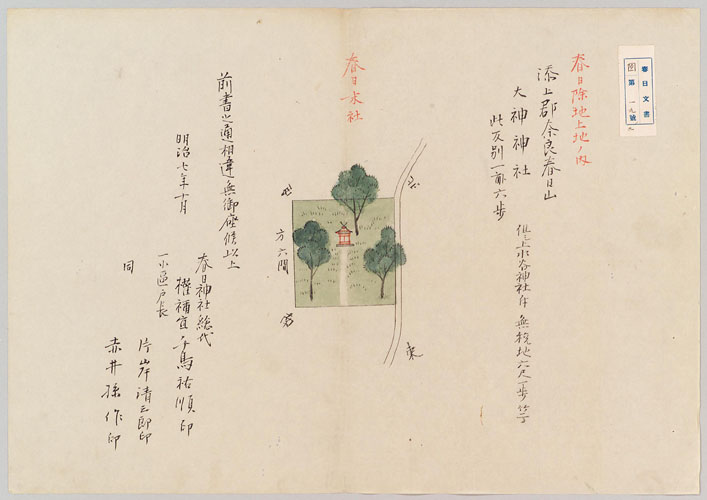 春日文書
図第一九號
春日除地上地ノ内
添上郡奈良春日山
大神神社
此反別一畝六歩
但シ上水谷神社
無税地六尺一歩
春日末社
北
東
方六間
前書之通相違無御座候也以上
明治七年十月
春日神社総代
権禰宜千鳥祐順印
一小區戸長
片岸清三郎印
同
赤井孫作印